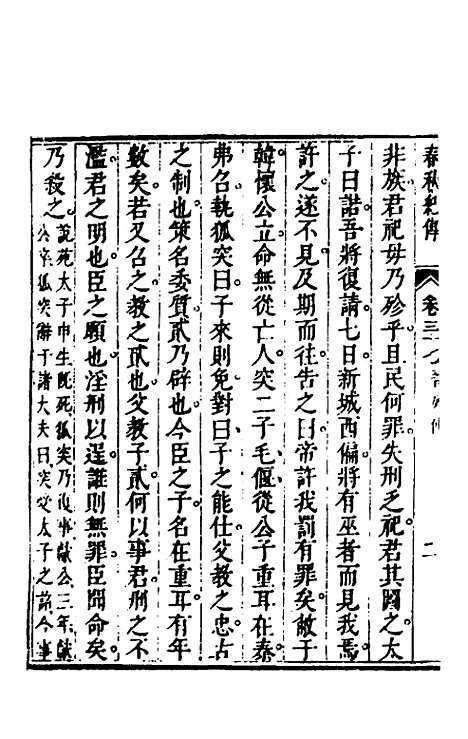 春秋紀傳 卷三十 二
非族君祀毋乃殄乎且民何罪失刑乏祀君其圖之太
子曰諾吾將復請七日新城西偏將有巫者而見我焉
許之遂不見及期而往告之曰帝許我罰有罪矣敝于
韓懷公立命無從亡人突二子毛偃從公子重耳在秦
弗召執狐突曰子來則免對曰子之能仕父教之忠古
之制也策名委質貳乃辟也今臣之子名在重耳有年
數矣若又召之教之貳也父教子貳何以事君刑之不
濫君之明也臣之願也淫刑以逞誰則無罪臣聞命矣
乃殺之
說苑太子申生既死狐突乃復事獻公三年獻
公卒狐突辭于諸大夫曰突受太子之詔今事